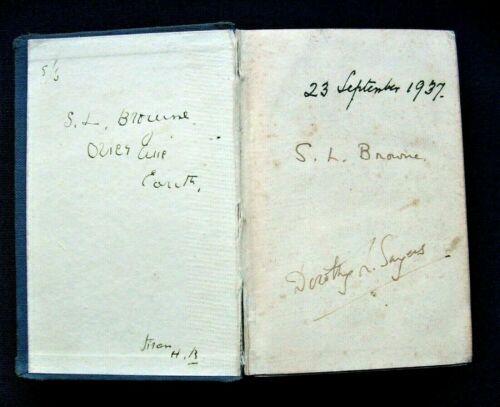 5/5
S. L. Browne.
Over the
Earth.
from
H. B
23 September 1937.
S. L. Browne.
Dorothy L. Sayers